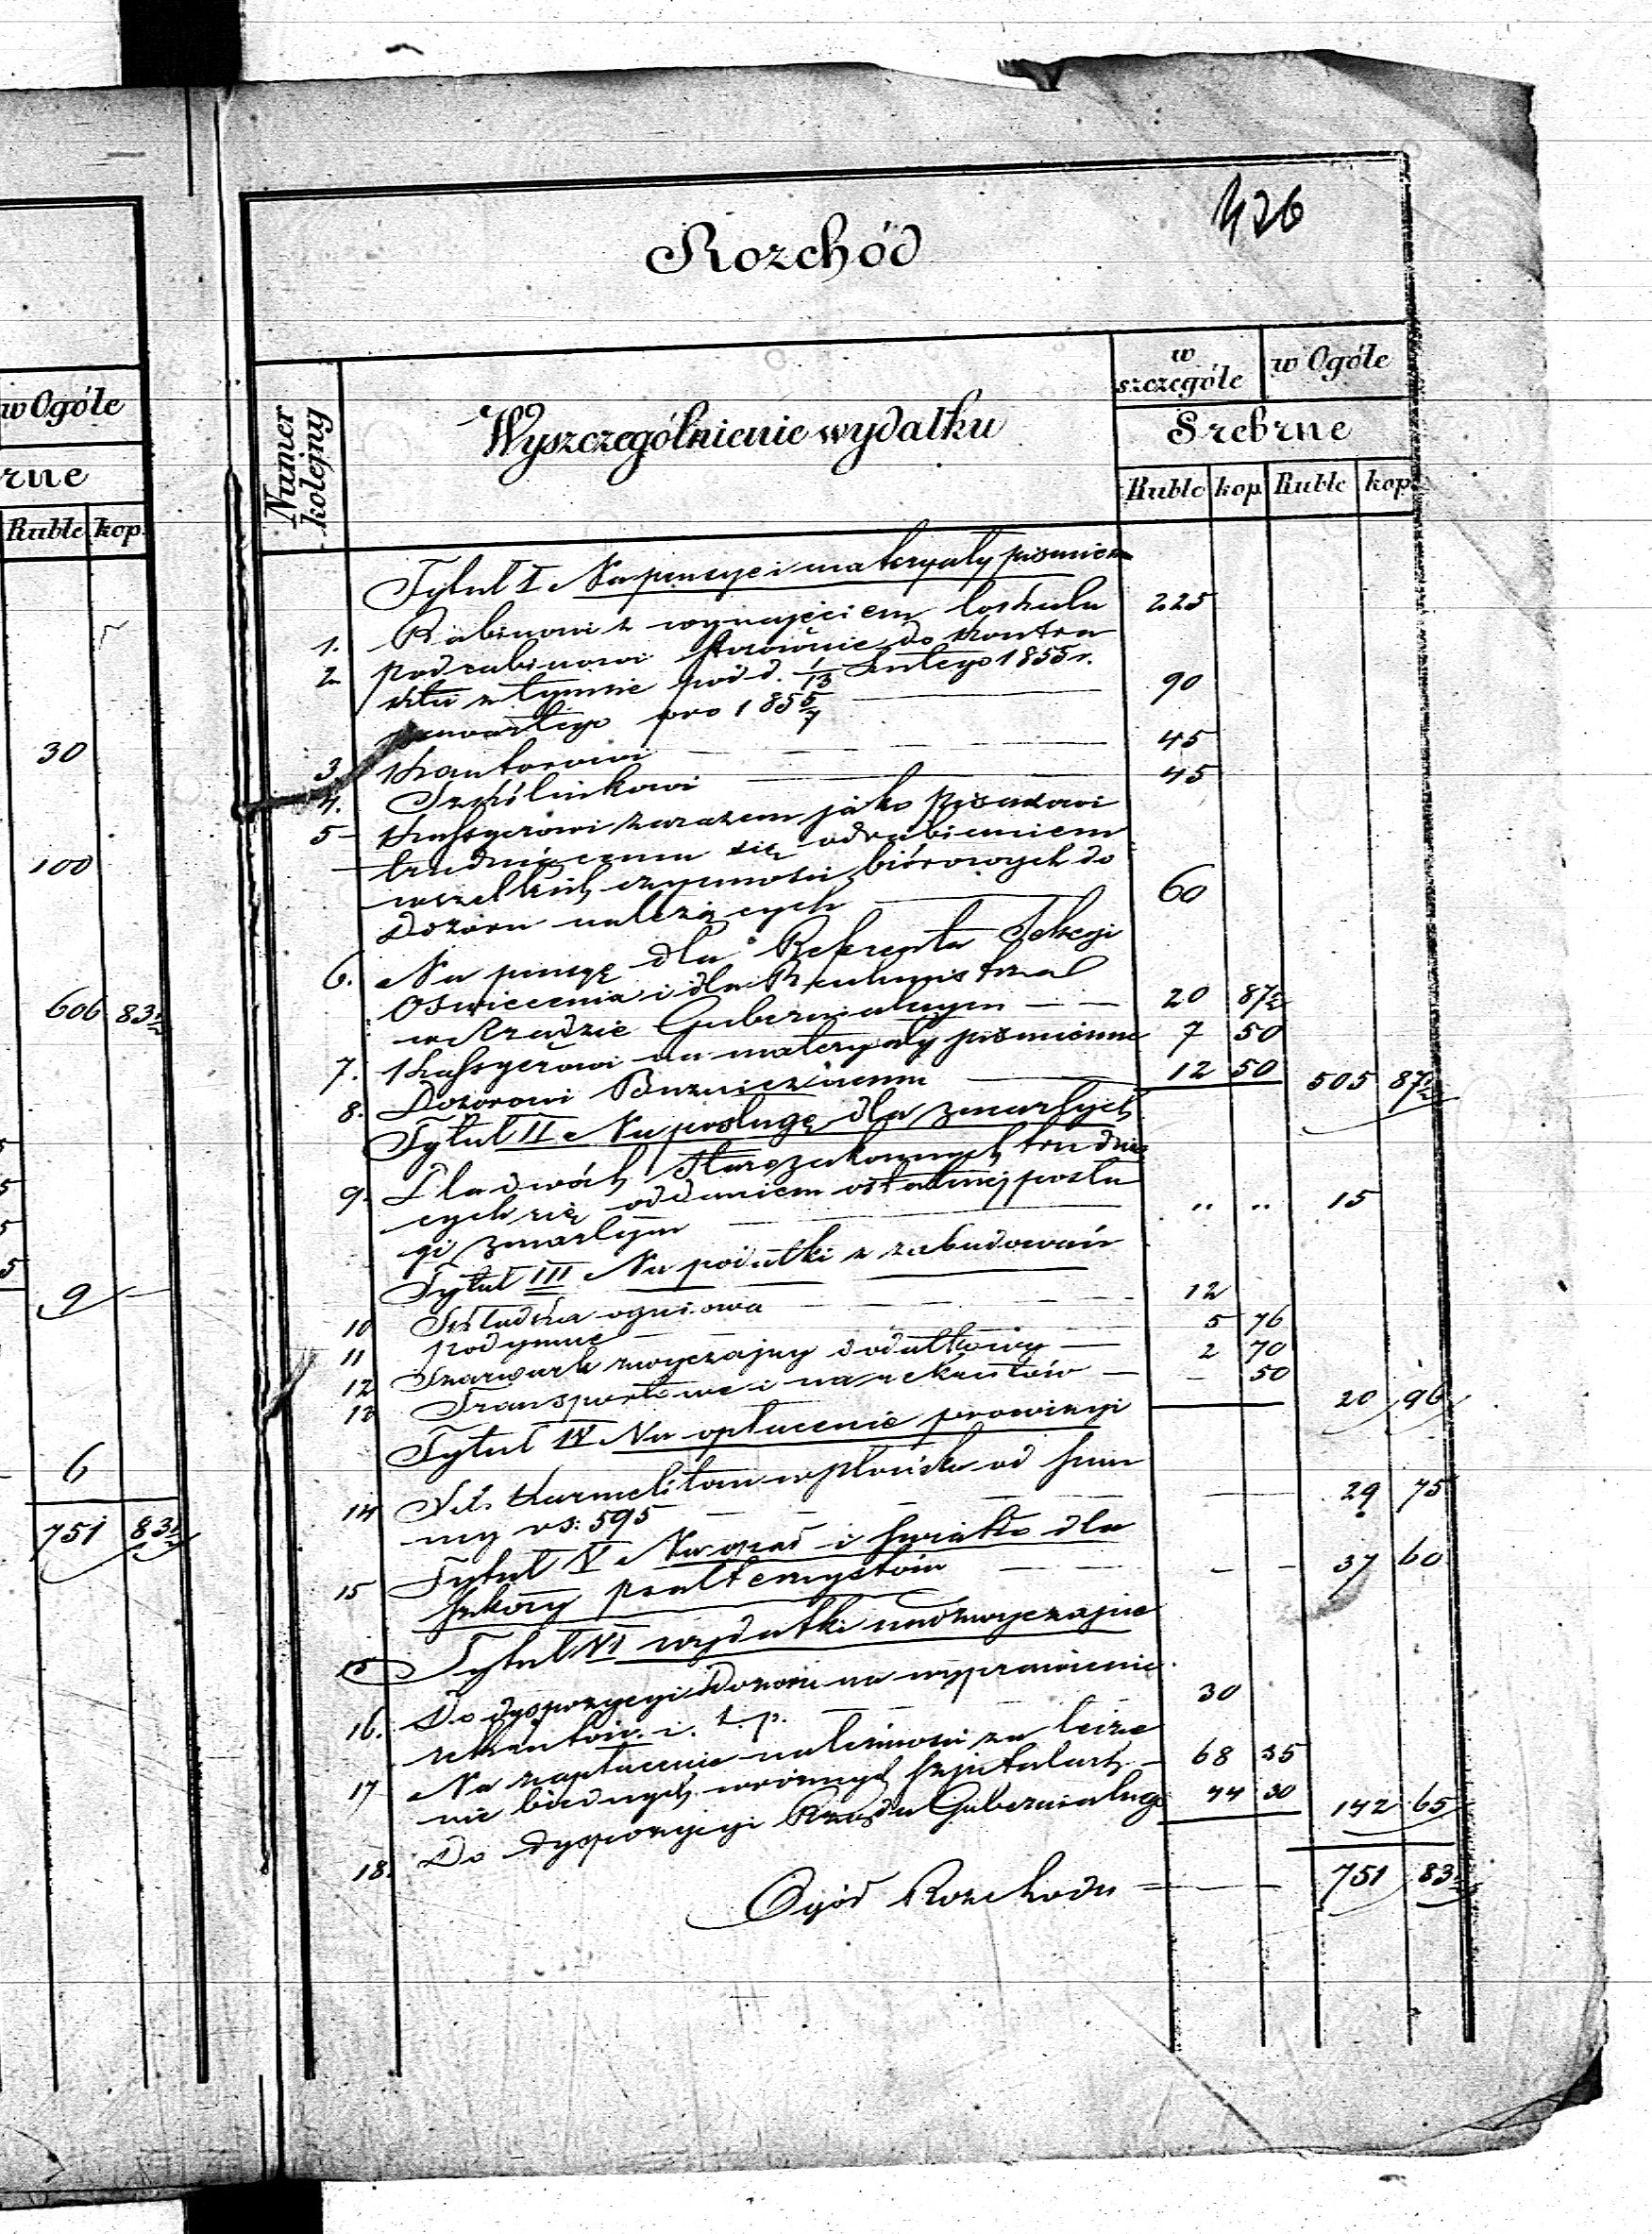 426
Rozchód
w Ogóle
rne
Ruble kop.
30
100
606 83½
9 —
6
751 83½
Numer kolejny
Wyszczególnienie wydatku
w szczególe
w Ogóle
Srebrne
Ruble kop Ruble kop
Tytuł I Na pensye i materyały piśmien
1. Rabinowi z wynajęciem lokalu 225
2 podrabinowi stosownie do kontra
ktu z tymże pod d. 1/13 Lutego 1855 r.
zawartego pro 185 5/7 — 90
3 Kantorowi — 45
4. Szkólnikowi — 45
5 – Kassyerowi zarazem jako Pisarzowi
trudniącemu się odrabianiem
wszelkich czynności biórowych do
Dozoru należących — 60
6. Na pensyę dla Referenta Sekcyi
Oswiecenia i dla Rachmistrza
w Rządzie Gubernialnym — — 20 87½
7. Kassyerowi na materyały piśmienne 7 50
8. Dozorowi Bużniczemu — 12 50 505 87½
Tytuł II Na posługę dla zmarłych
9. Dla dwóch Starozakonnych trudnią
cych się oddaniem ostatniej posłu
gi zmarłym — .. .. 15
Tytuł III Na podatki z zabudowań
10 Składka ogniowa — 12
11 podymne — 5 76
12 Szarwark zwyczajny dodatkowy — 2 70
13 Transportowe i na rekrutów — – 50 20 96
Tytuł IV Na opłacenie prowizyi
14 XX. Karmelitom w Płońsku od Sum
my rs: 595 — — 29 75
Tytuł V Na opał i światło dla
15 Szkoły psalterzystów — — – – 37 60
15 Tytuł VI wydatki nadzwyczajne
16. Do dyspozycyi Dozoru na wyprawienie
rekrutów i t. p. — 30
17 Na zapłacenie należności za lecze
nie biednych w różnych szpitalach – 68 35
18. Do dyspozycyi Rządu Gubernialnego 44 30 142 65
Ogół Rozchodu — 751 83½